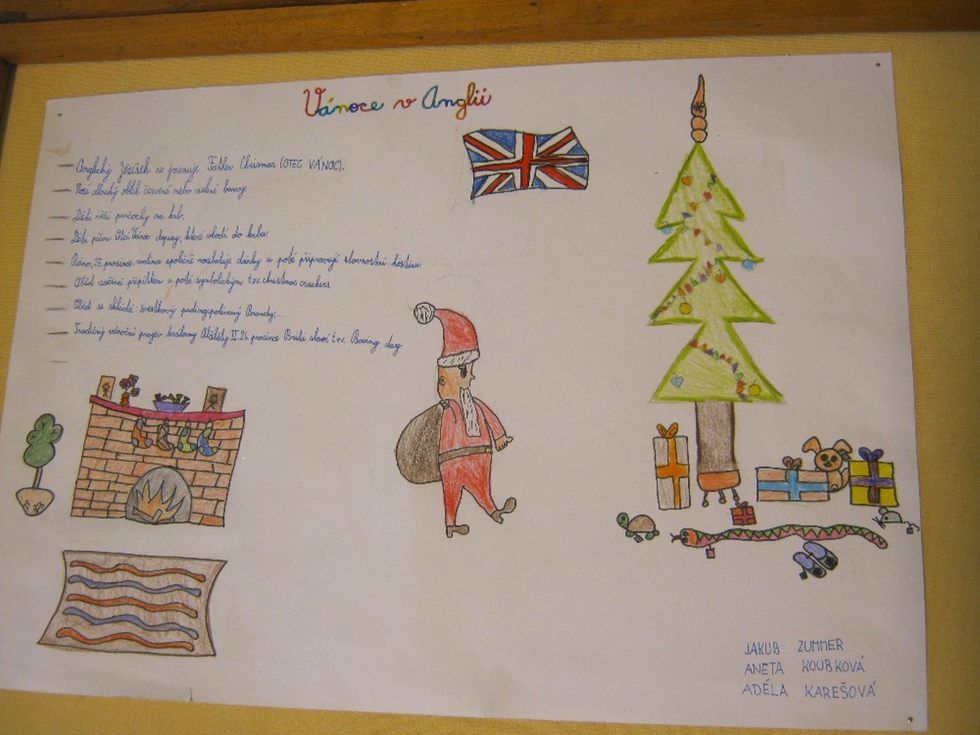 Vánoce v Anglii
Anglický Ježíšek se jmenuje Father Christmas (OTEC VÁNOC).
Nosí dlouhý oblek červené nebo zelené barvy.
Děti věší punčochy na krb.
Děti píšou Otci Vánoc dopisy, které vhodí do krbu.
Ráno, 25. prosince, rodina společně rozbaluje dárky a poté připravují slavnostní hostinu.
Oběd začíná přípitkem a poté symbolickým tzv. christmas crackers.
Oběd se skládá: švestkový puding, polévaný Brandy,...
Tradičný vánoční projev královny Alžběty II. 26. prosince Britů slaví tzv. Boxing day.
JAKUB ZUMMER
ANETA KOUBKOVÁ
ADÉLA KAREŠOVÁ